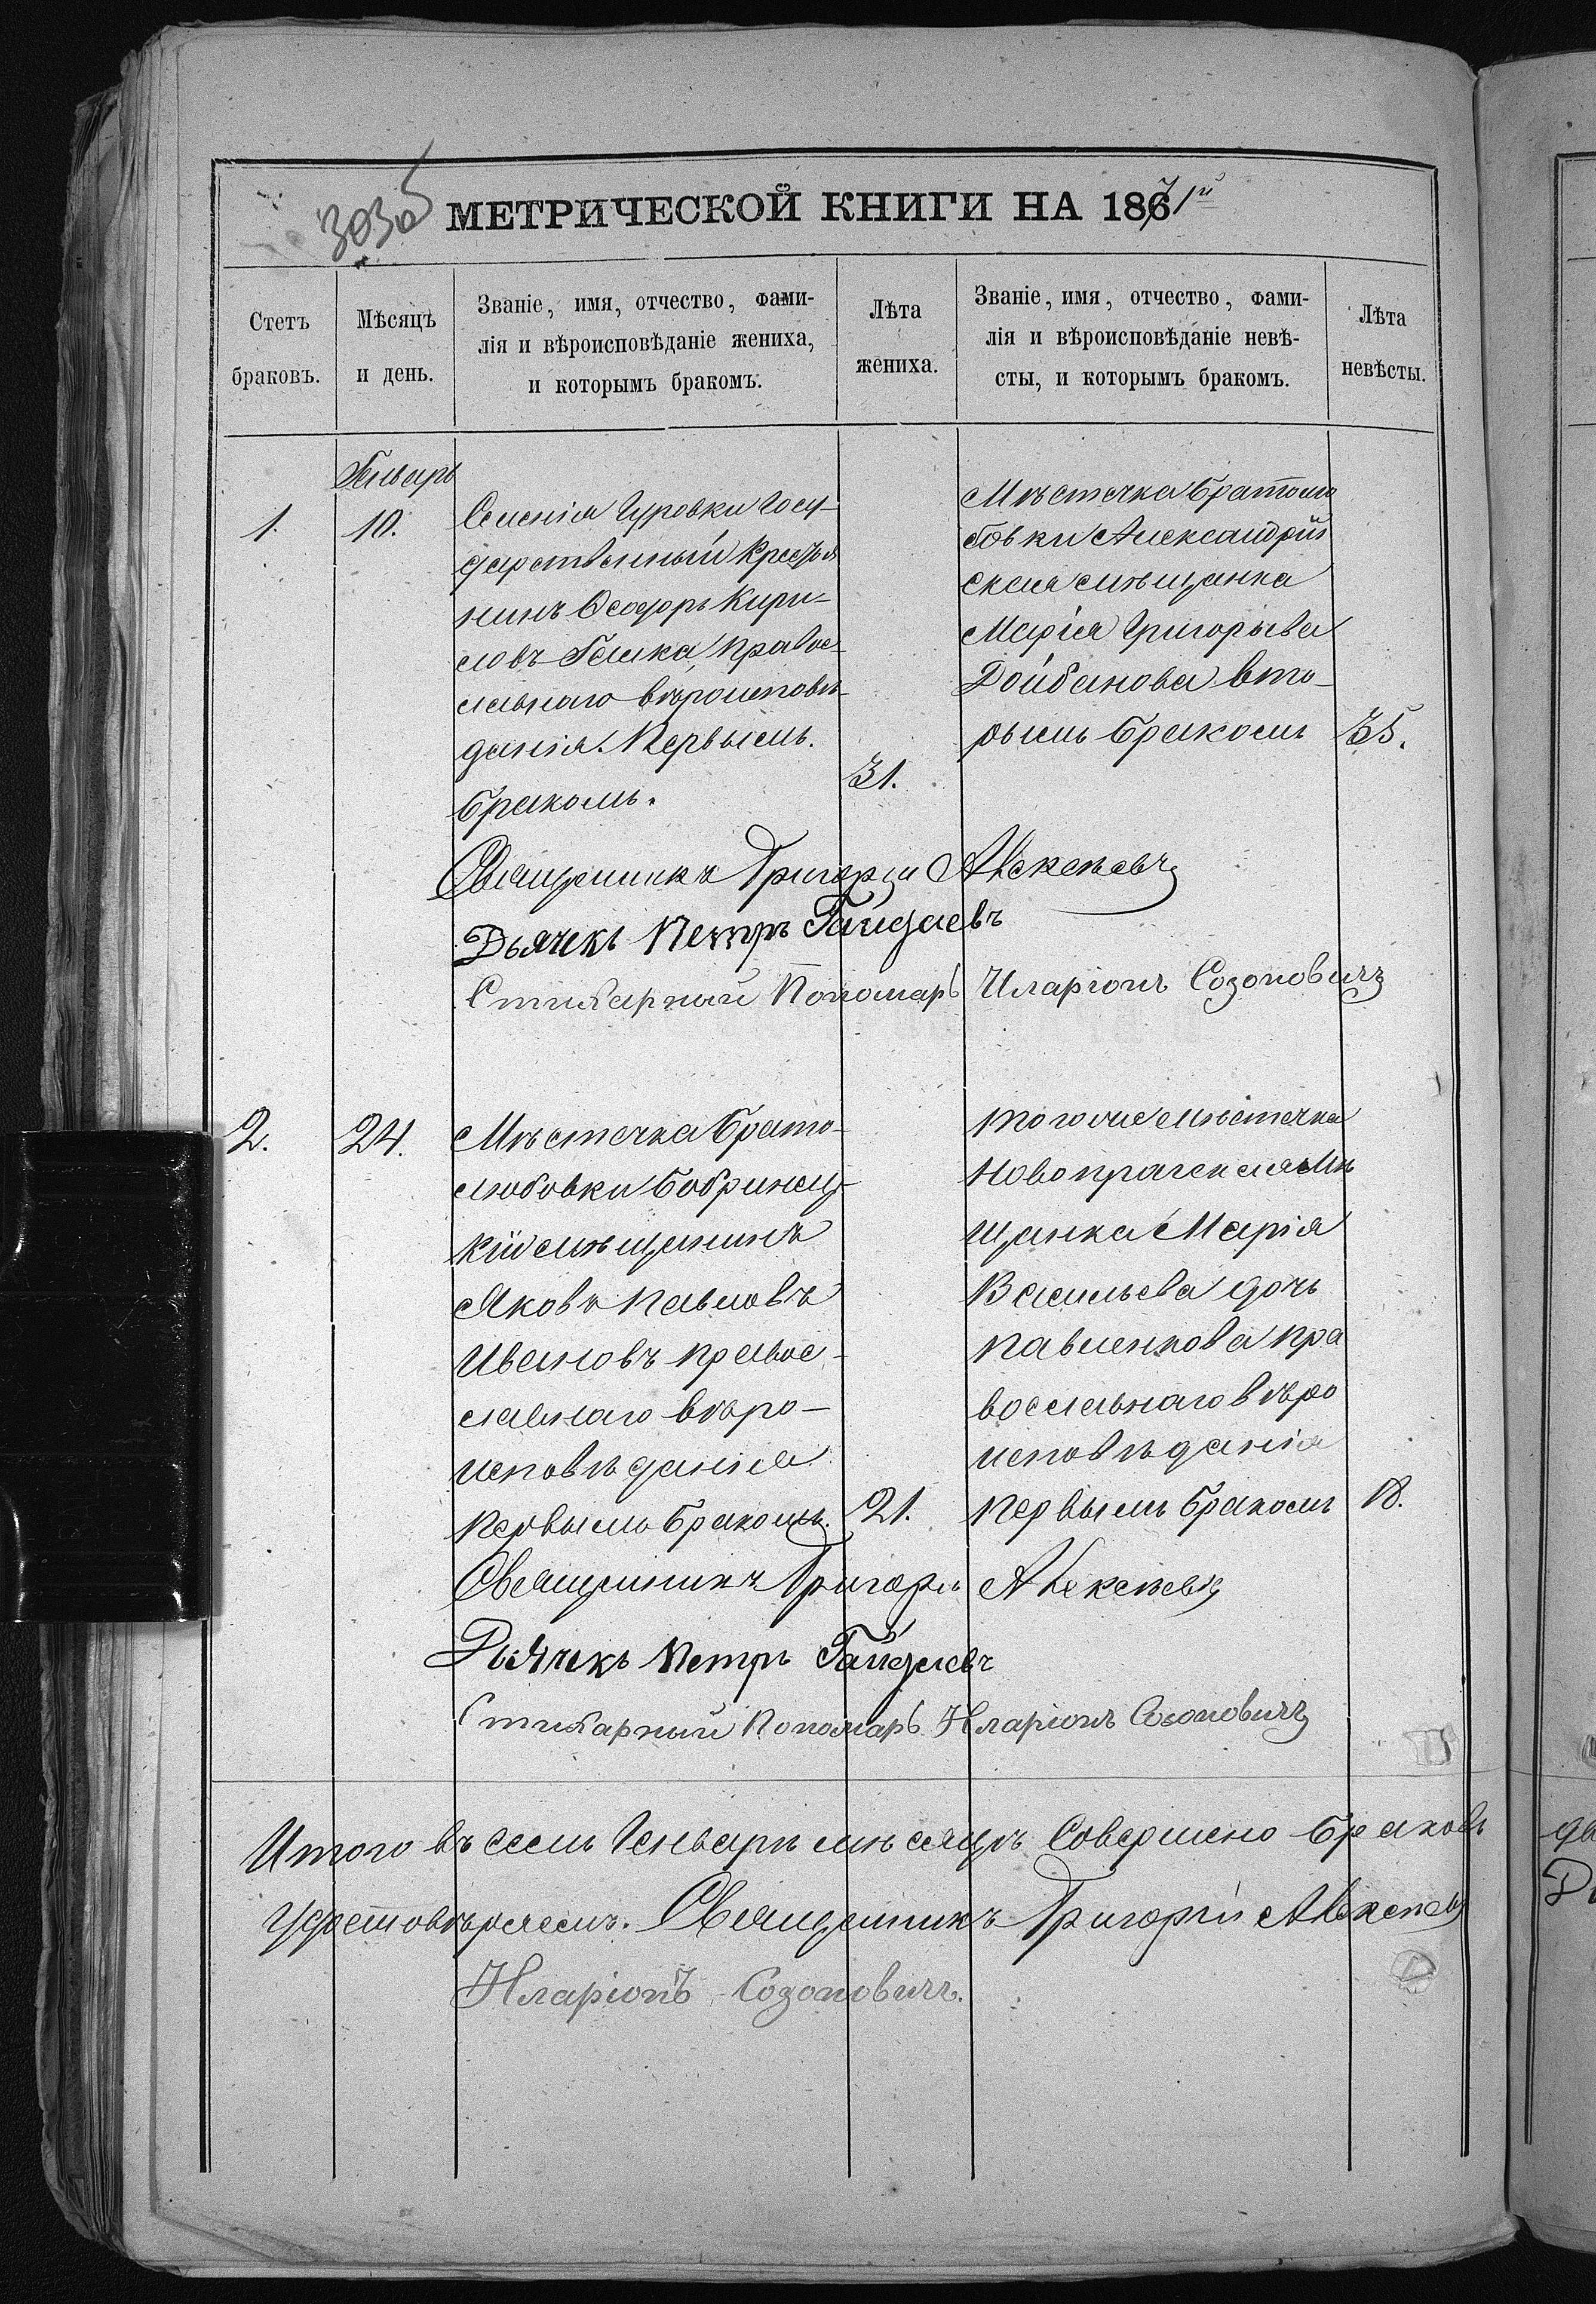 303об
МЕТРИЧЕСКОЙ КНИГИ НА 1871й
Счетъ браковъ.
Мѣсяцъ и день.
Званіе, имя, отчество, фами-
лія и вѣроисповѣданіе жениха,
и которымъ бракомъ.
Лѣта жениха.
Званіе, имя, отчество, фами-
лія и вѣроисповѣданіе невѣ-
сты, и которымъ бракомъ.
Лѣта невѣсты.
Генварь
1.
10.
Селенія Гуровки Госу-
дарственный Крестья
нинъ Ѳеодоръ Кири-
ловъ правос
лавнаго вѣроисповѣ-
данія. Первымъ.
бракомъ.
31.
Мѣстечка Братолю
бовки Александрій
ская мѣщанка
Марія Григорьева
Дойбанова вто-
рымъ бракомъ
35.
Священникъ Григорій Алексѣевъ
Дьячекъ Петръ Гайдаевъ
Стихарный Пономарь Иларіонъ Созоновичъ
2.
24.
Мѣстечка Брато-
любовки Бобринец-
кій мѣщанинъ
Яковъ Павловъ
Ивановъ правос-
лавнаго вѣро-
исповѣданія
первымъ бракомъ.
21.
того же мѣстечка
Новопрагская Мѣ
щанка Марія
Васильева дочь
Павленкова пра
вославнаго вѣро
исповѣданія
первымъ бракомъ
18.
Священникъ Григорій Алексѣевъ
Дьячекъ Петръ Гайдаевъ
Стихарный Пономарь Иларіонъ Созоновичъ
Итого въ семъ Генварѣ мѣсяцѣ Совершено браковъ
Священникъ Григорій Алексѣевъ
Иларіонъ Созоновичъ.